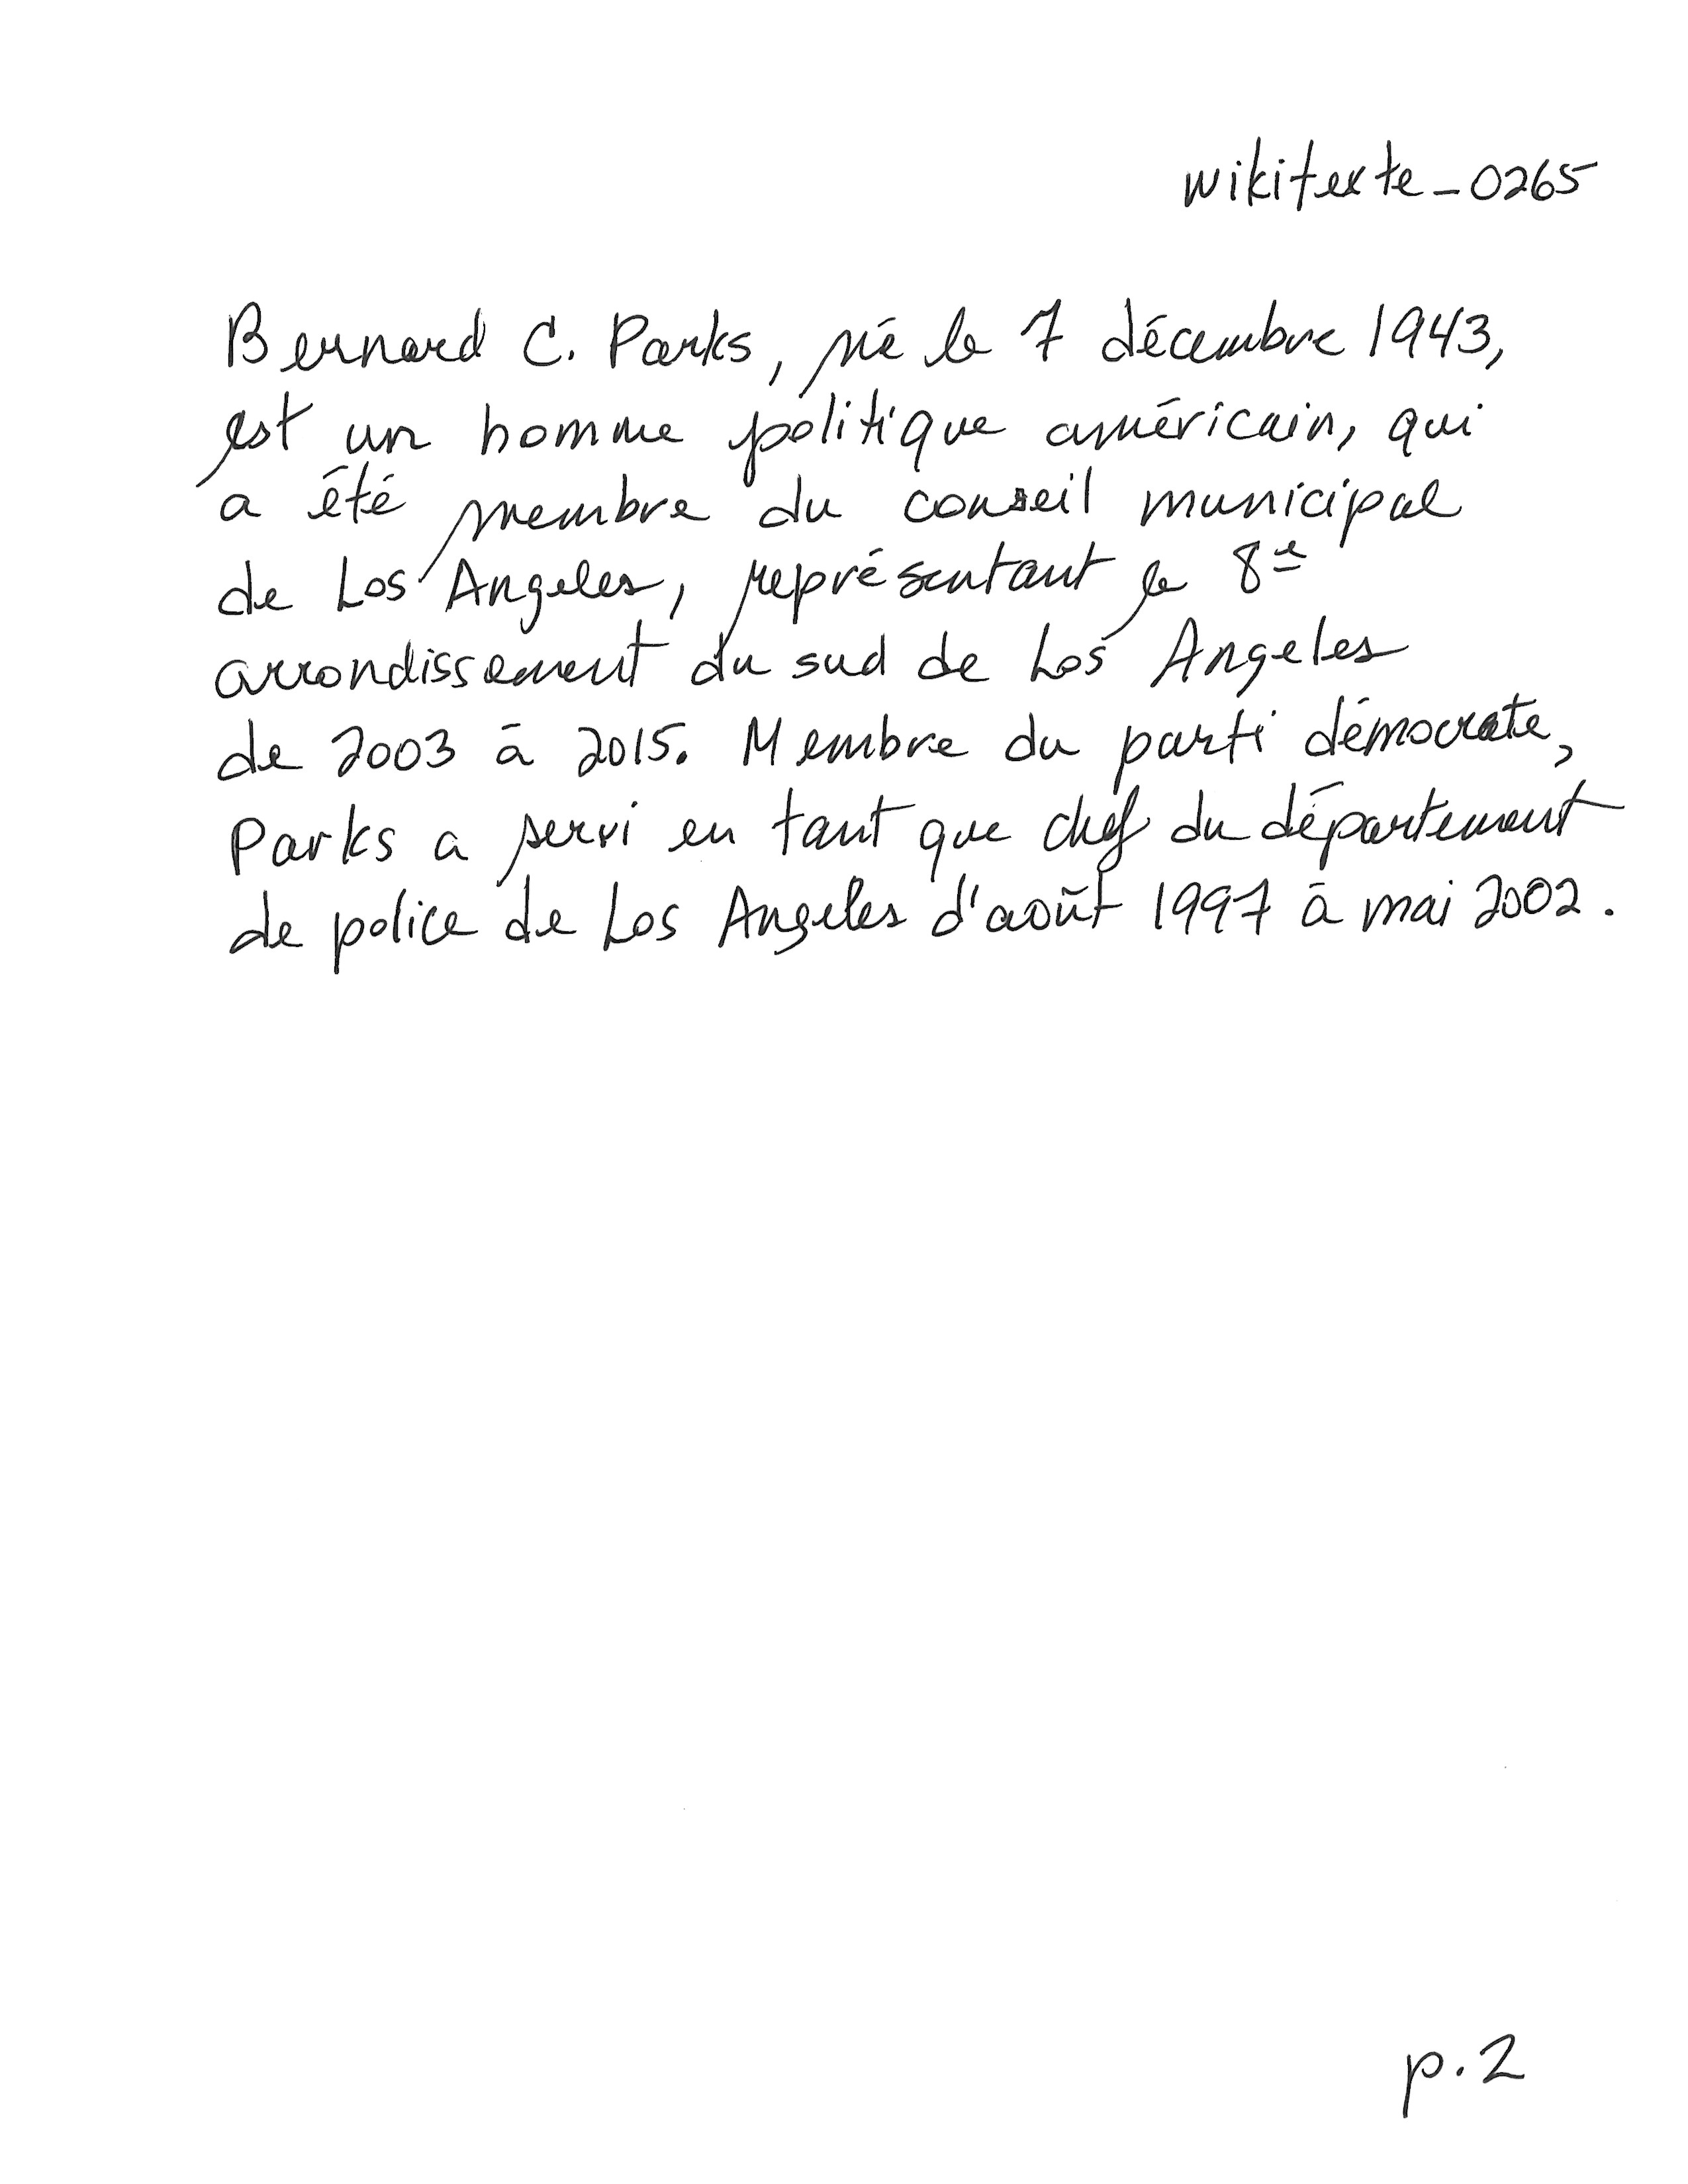 wikitexte_0265
Bernard C. Parks, né le 7 décembre 1943,
est un homme politique américain, qui
a été membre du conseil municipal
de Los Angeles, représentant le 8e
arrondissement du sud de Los Angeles
de 2003 à 2015. Membre du parti démocrate,
Parks a servi en tant que chef du département
de police de Los Angeles d'août 1997 à mai 2002.
p.2